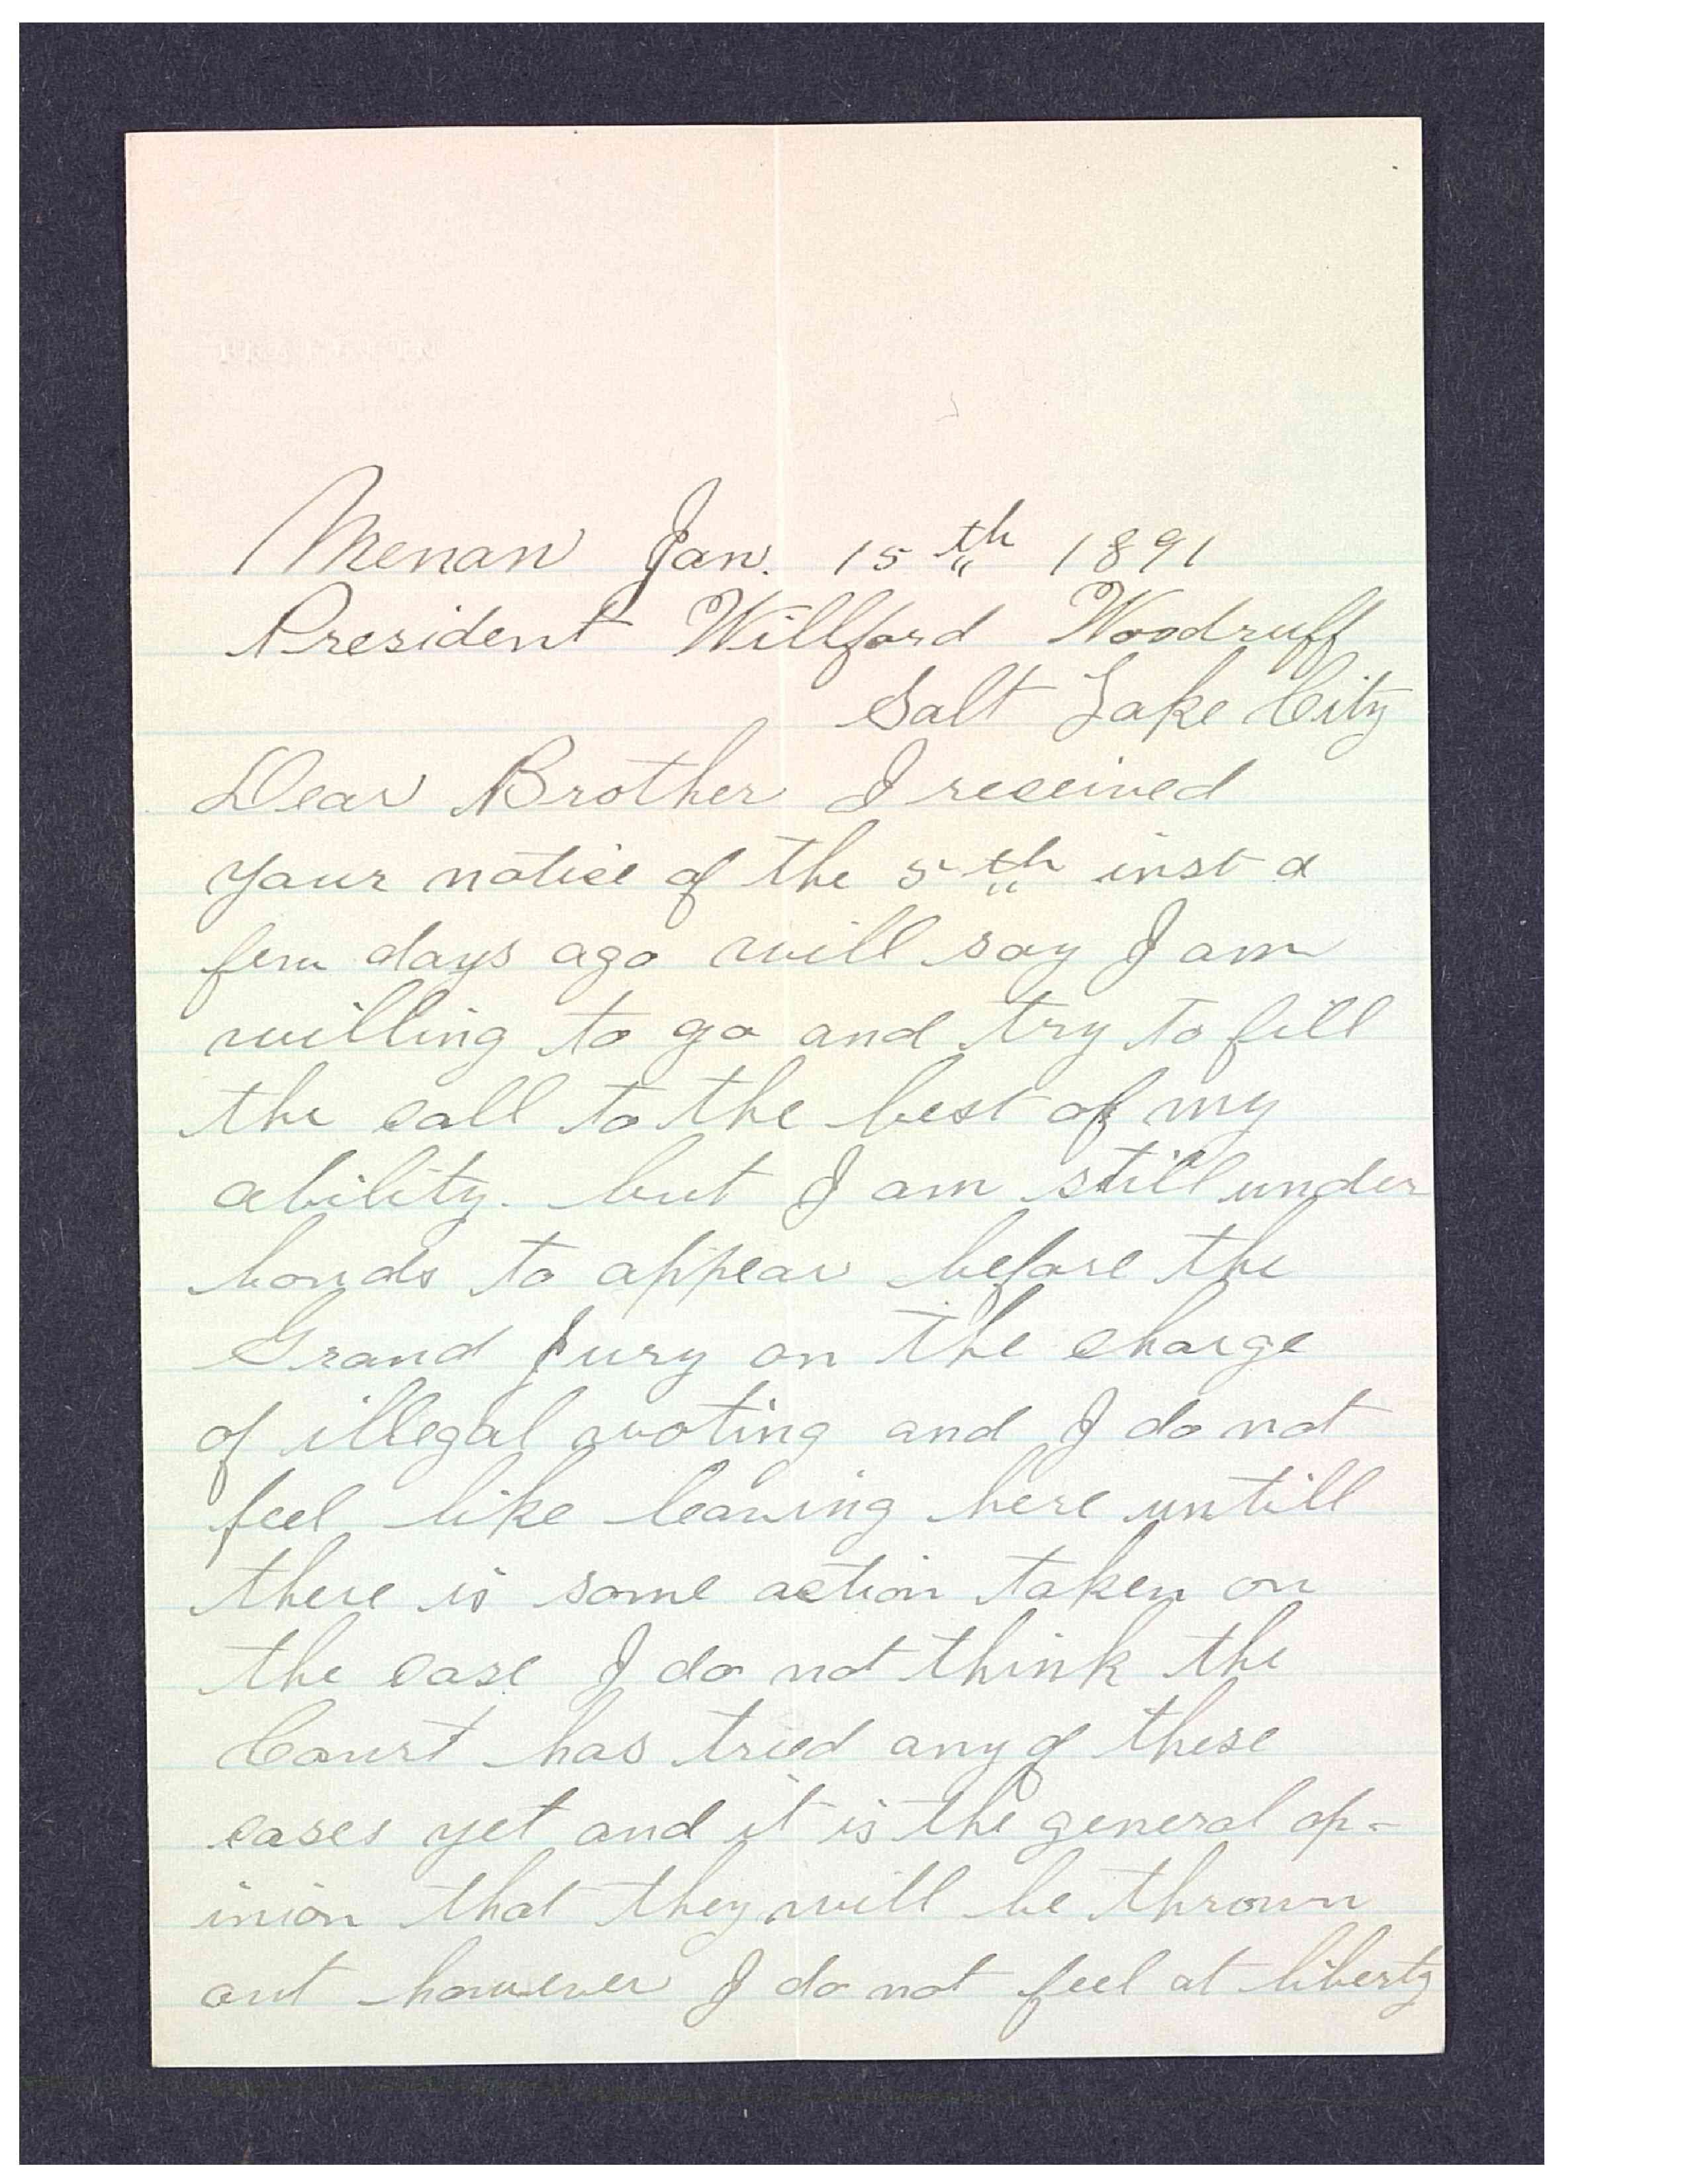 Menan Jan. 15th 1891
President Willford Woodruff
Salt Lake City
Dear Brother I received
your notice of the 5th inst a
few days ago will say I am
willing to go and try to fill
the call to the best of my
ability. but I am still under
bonds to appear before the
Grand Jury on the charge
of illegal voting and I do not
feel like leaving here untill
there is some action taken on
the case I do not think the
Court has tried any of these
cases yet and it is the general op-
inion that they will be thrown
out however I do not feel at liberty